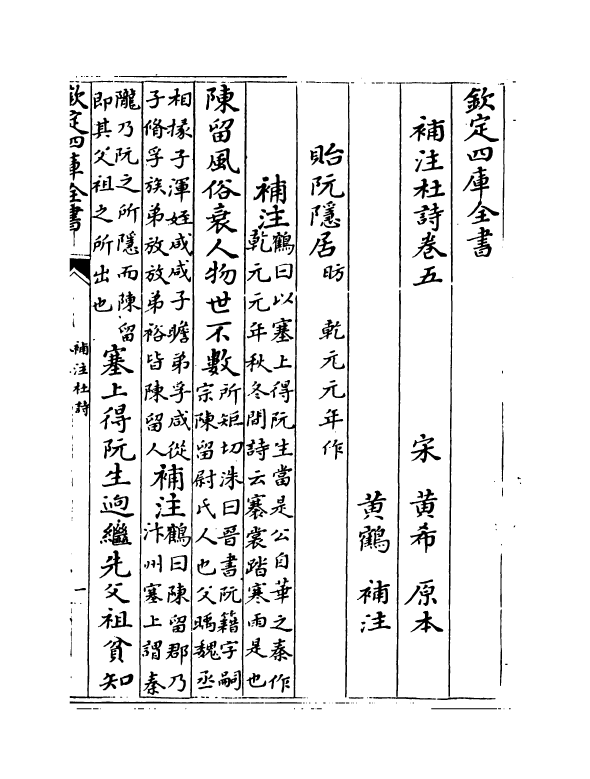 欽定四庫全書
補注杜詩卷五　宋　黄希　原本
黄鶴　補注
貽阮隱居　昉　乾元元年作
補注　鶴曰以塞上得阮生當是公自華之秦作
乾元元年秋冬間詩云褰裳踏寒雨是也
陳留風俗衰人物世不數　所矩切洙曰晉書阮籍字嗣
宗陳留尉氏人也父瑀魏丞
相掾子渾姪咸咸子瞻弟孚咸從
子脩孚族弟放放弟裕皆陳留人
補注　鶴曰陳留郡乃
汴州塞上謂秦
隴乃阮之所隱而陳留
即其父祖之所出也
塞上得阮生迥繼先父祖貧知
欽定四庫全書
補注杜詩
一